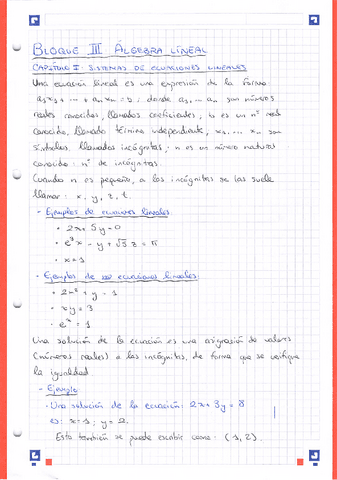 BLOQUE III ÁLGEBRA LINEAL
CAPÍTULO I: SISTEMAS DE ECUACIONES LINEALES
Una ecuación lineal es una expresión de la forma:
a₁x₁ + ... + aₙxₙ = b ; donde a₁ ... aₙ son números
reales conocidos, llamados coeficientes, b es un nº real
conocido, llamado término independiente, x₁ ... xₙ son
símbolos llamados incógnitas, n es un número natural
conocido: nº de incógnitas.
Cuando n es pequeño, a las incógnitas se las suele
llamar: x, y, z, t.
- Ejemplos de ecuaciones lineales
• 2x + 5y = 0
• e³x - y + √3 z = π
• x = 1
- Ejemplos de ecuaciones lineales:
• 2x² + y = 1
• xy = 3
• eˣ = 1
Una solución de la ecuación es una asignación de valores
(números reales) a las incógnitas, de forma que se verifique
la igualdad.
- Ejemplo
• Una solución de la ecuación: 2x + 3y = 8
es: x = 1; y = 2.
Esto también se puede escribir como: (1, 2).